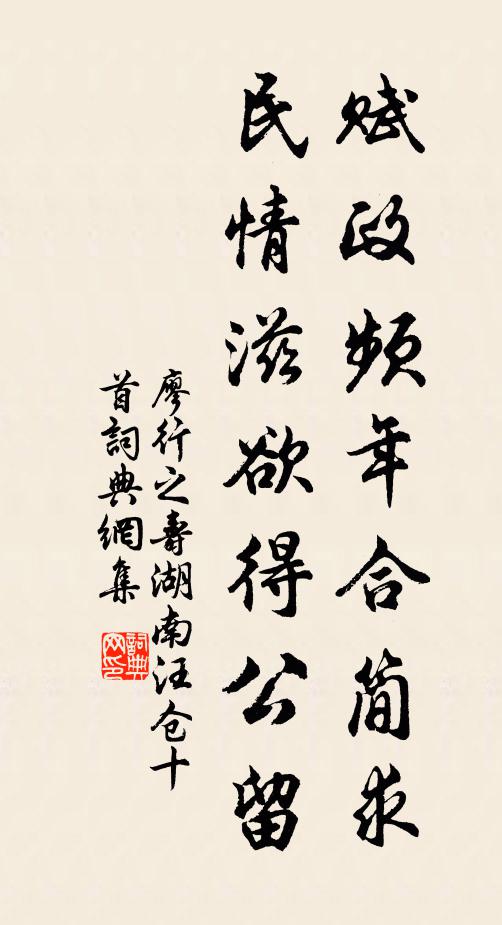 赋政频年合简求
民情滋欲得公留
廖行之寿湖南汪仓十
首詞典網集
詞典网印